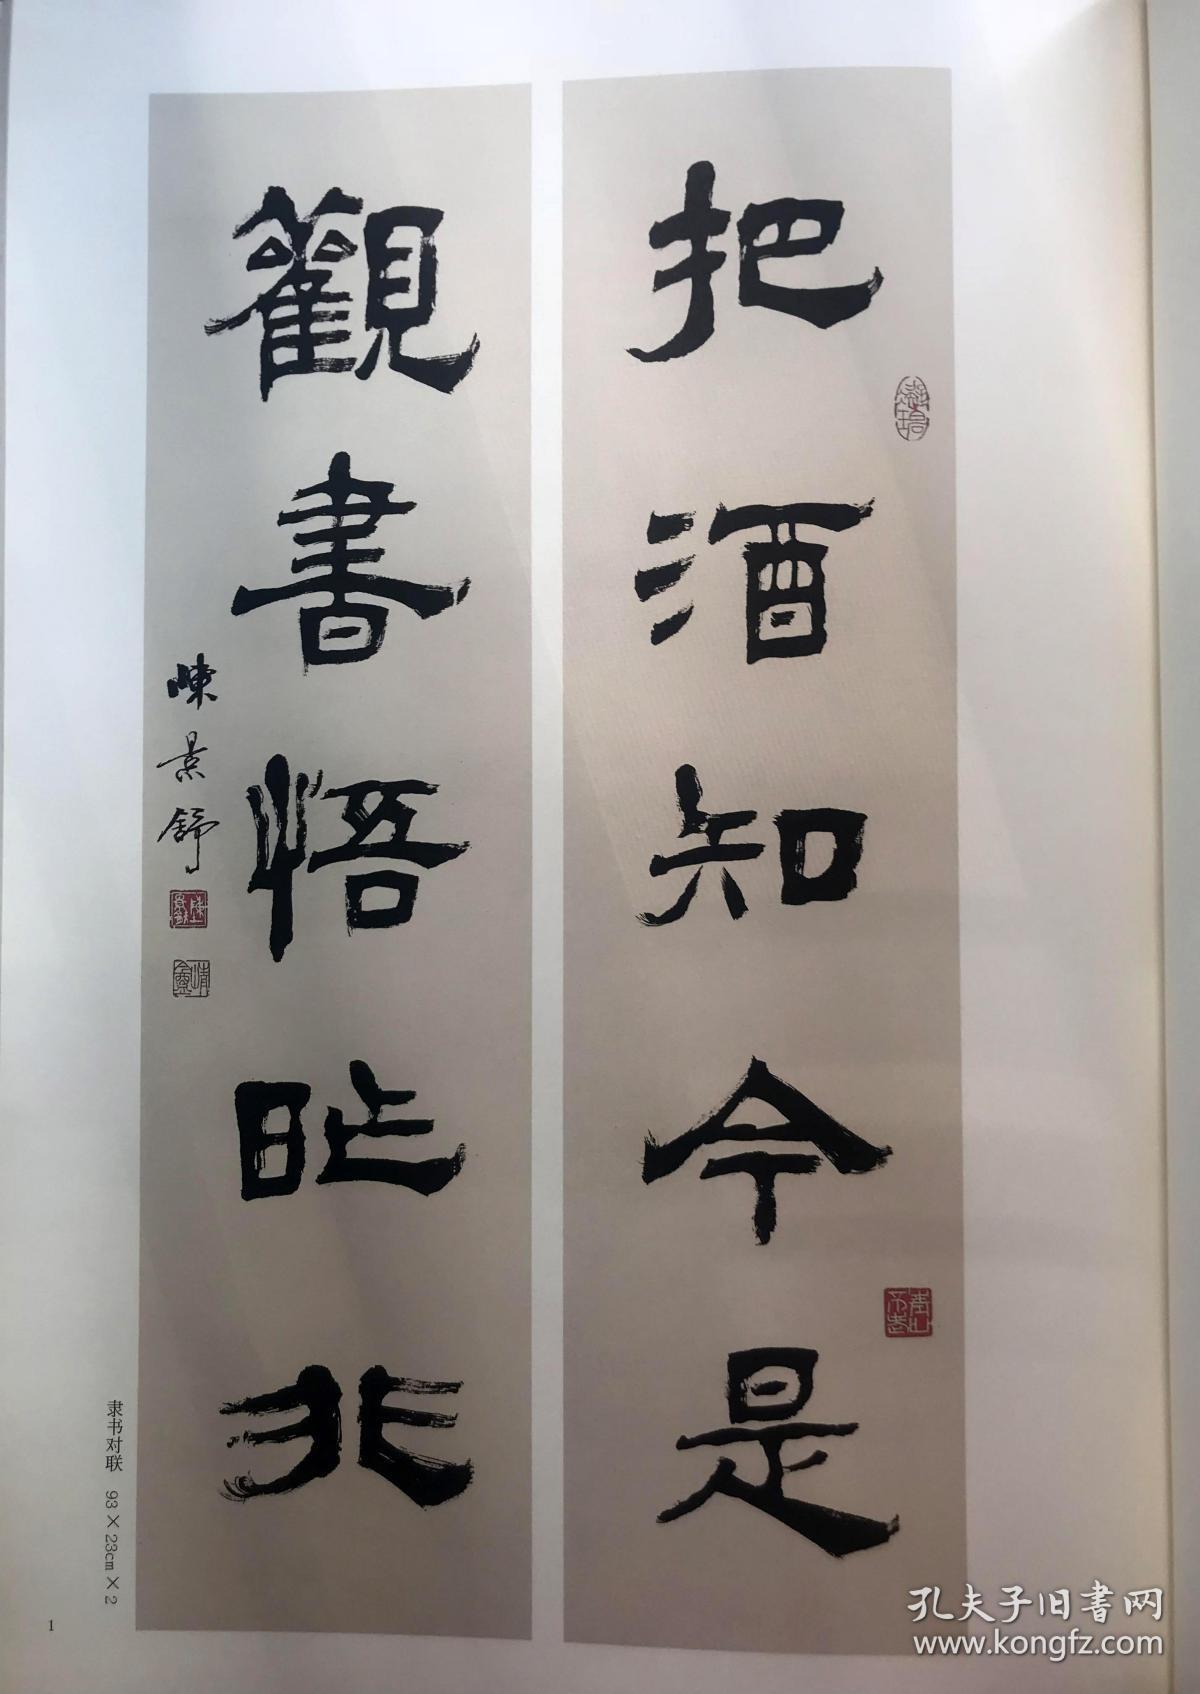 把酒知今是
觀書悟昨非
陳景舒
隶书对联 93×23cm×2
1
孔夫子旧书网
www.kongfz.com